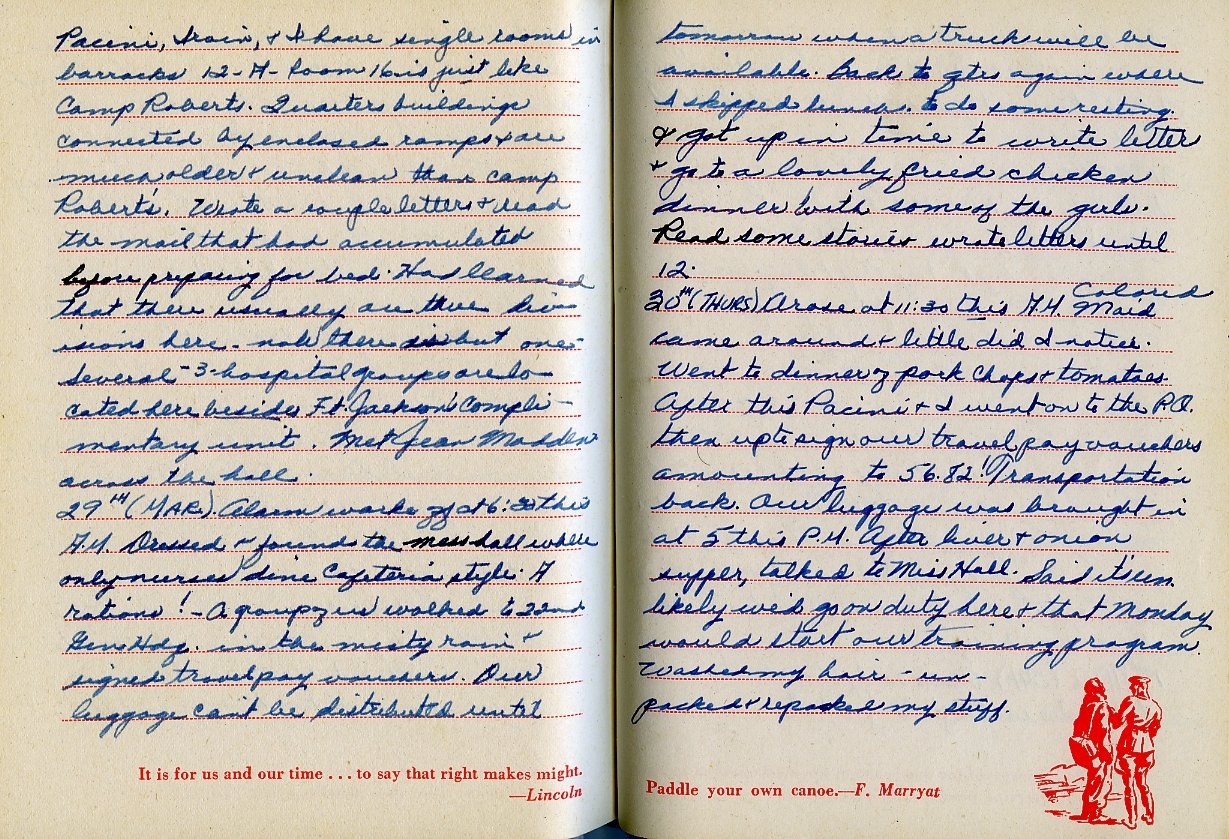 Pacini, Swain, & I have single rooms in
barracks 12-A- Room 16 is just like
Camp Roberts. Quarters buildings
connected by enclosed ramps & are
much older & unclean than camp
Roberts'. Wrote a couple letters & read
the mail that had accumulated
before preparing for bed. Had learned
that there usually are three div-
isions here - now there is but one-
several -3- hospital groups are lo-
cated here beside Ft. Jackson's compli-
mentary unit. Met Jean Madden
across the hall.
29TH (MAR). Alarm woke at 6:30 this
A.M. Dressed & found the mess hall where
only nurses dine Cafeteria style. A
rations! - A group of us walked to 22nd
Gen Hdq. in the misty rain &
signed travel pay vouchers. Our
luggage can't be distributed until
It is for us and our time . . . to say that right makes might.
—Lincoln
tomorrow when a truck will be
available. Back to qtrs again where
I skipped lunch to do some resting
& got up in time to write letter
& go to a lovely fried chicken
dinner with some of the girls.
Read some stories wrote letters until
12.
30TH (THURS) Arose at 11:30 this A.M. Colored Maid
came around & little did I notice.
Went to dinner of pork chops & tomatoes
After this Pacini & I went on to the P.O.
then up to sign our travel pay vouchers
amounting to 56.82! Transportation
back. Our luggage was brought in
at 5 this P.M. After liver & onion
supper, talked to Miss Hall. Said it's un-
likely we'd go on duty here & that Monday
would start our training program.
Washed my hair - un-
packed & repacked my stuff.
Paddle your own canoe.—F. Marryat